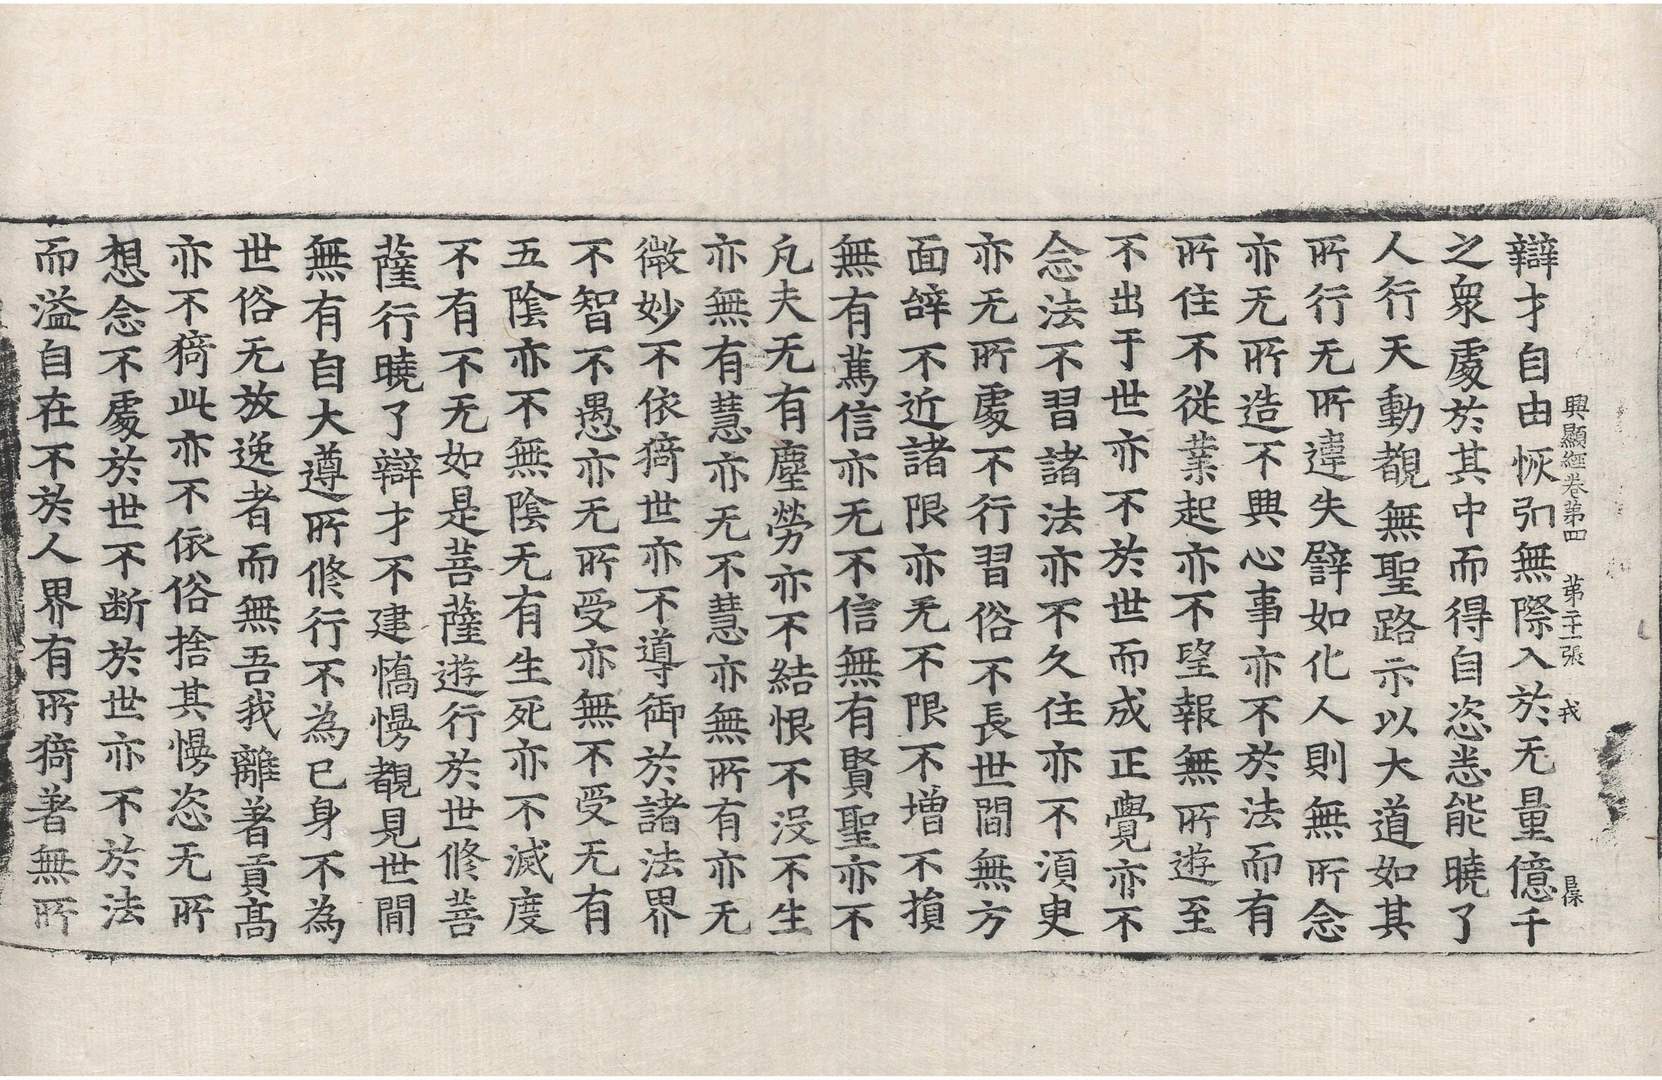 辯才自由恢弘無際入於无量億千
興顯經卷第四　第二十一張　戎
之衆處於其中而得自恣悉能曉了
人行天動覩無聖路示以大道如其
所行无所違失譬如化人則無所念
亦无所造不興心事亦不於法而有
所住不從業起亦不望報無所遊至
不出于世亦不於世而成正覺亦不
念法不習諸法亦不久住亦不須臾
亦无所處不行習俗不長世間無方
面辞不近諸限亦无不限不增不損
無有蔿信亦无不信無有賢聖亦不
凡夫无有塵勞亦不結恨不没不生
亦無有慧亦无不慧亦無所有亦无
微妙不依猗世亦不導御於諸法界
不智不愚亦无所受亦無不受无有
五陰亦不無陰无有生死亦不滅度
不有不无如是菩薩遊行於世修菩
薩行曉了辯才不建憍慢覩見世間
無有自大遵所修行不為已身不為
世俗无放逸者而無吾我離著貢高
亦不猗此亦不依俗捨其慢恣无所
想念不處於世不断於世亦不於法
而溢自在不於人界有所猗著無所